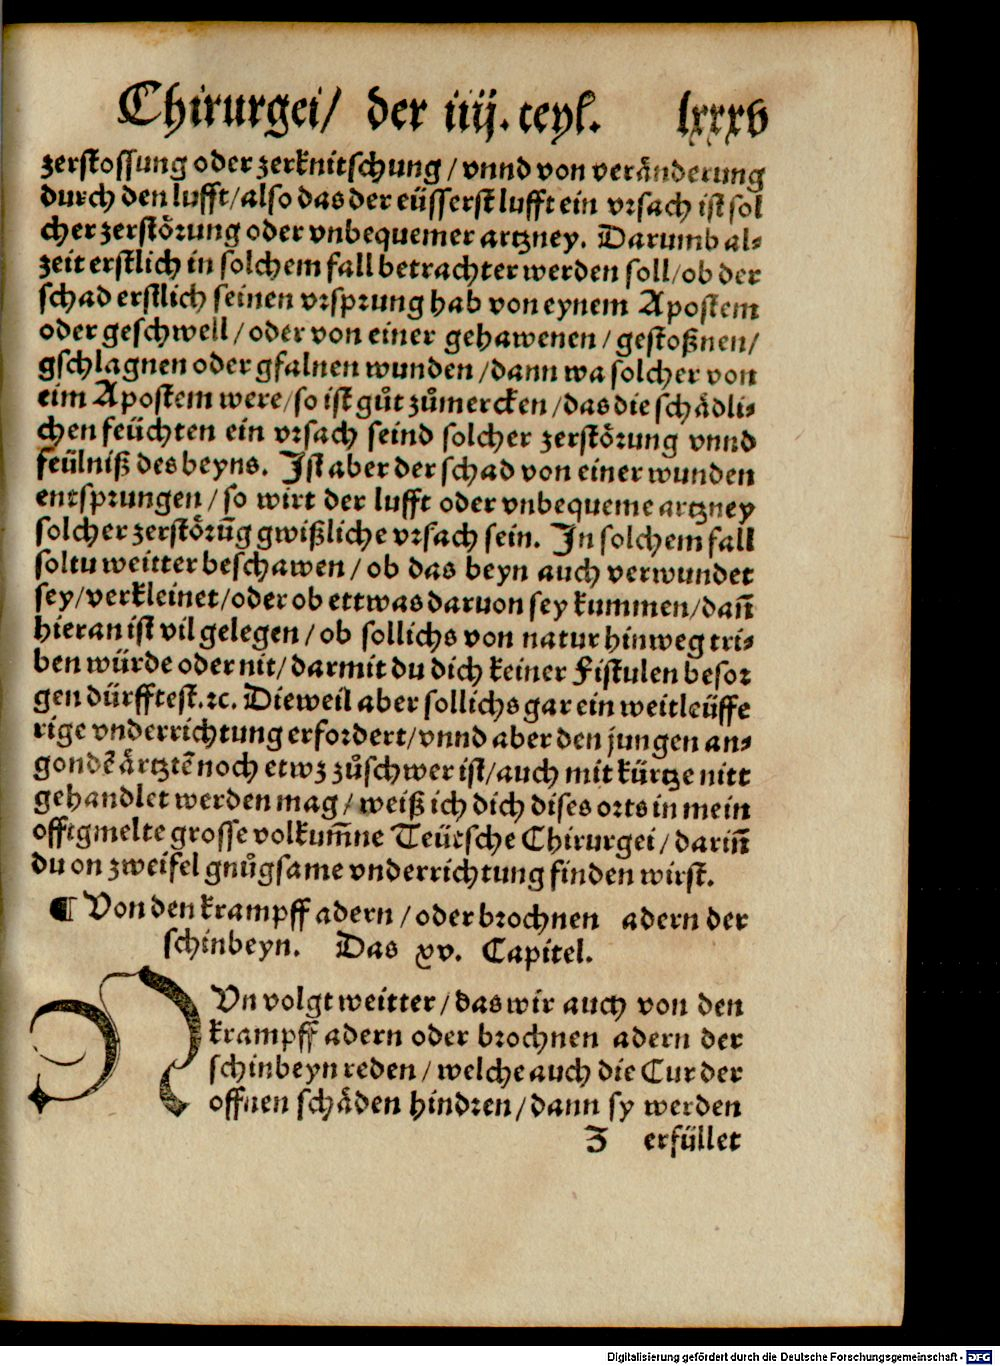 Chirurgei/ der iiij. teyl. lxxxv
zerstossung oder zerknitschung / vnnd von veränderung
durch den lufft/also das der eüsserst lufft ein vrsach ist sol
cher zerstörung oder vnbequemer artzney. Darumb al⸗
zeit erstlich in solchem fall betrachter werden soll/ob der
schad erstlich seinen vrsprung hab von eynem Apostem
oder geschwell / oder von einer gehawenen / gestoßnen/
gschlagnen oder gfalnen wunden /dann wa solcher von
eim Apostem were/so ist gůt zůmercken /das die schädli⸗
chen feüchten ein vrsach seind solcher zerstörung vnnd
feülniß des beyns. Ist aber der schad von einer wunden
entsprungen / so wirt der lufft oder vnbequeme artzney
solcher zerstörūg gwißliche vrsach sein. In solchem fall
soltu weitter beschawen / ob das beyn auch verwundet
sey/verkleinet/oder ob ettwas daruon sey kummen/dañ
hieran ist vil gelegen / ob sollichs von natur hinweg tri⸗
ben würde oder nit/darmit du dich keiner Fistulen besor
gen dürfftest.⁊c. Dieweil aber sollichs gar ein weitleüffe
rige vnderrichtung erfordert/vnnd aber den jungen an⸗
gondē ärtztē noch etwz zůschwer ist/auch mit kürtze nitt
gehandlet werden mag / weiß ich dich dises orts in mein
offtgmelte grosse volkum̄ne Teütsche Chirurgei / dariñ
du on zweifel gnůgsame vnderrichtung finden wirst.
¶ Von den krampff adern / oder brochnen adern der
schinbeyn. Das xv. Capitel.
NVn volgt weitter/das wir auch von den
krampff adern oder brochnen adern der
schinbeyn reden / welche auch die Cur der
offnen schäden hindren/dann sy werden
Z erfüllet
Digitalisierung gefördert durch die Deutsche Forschungsgemeinschaft - DFG